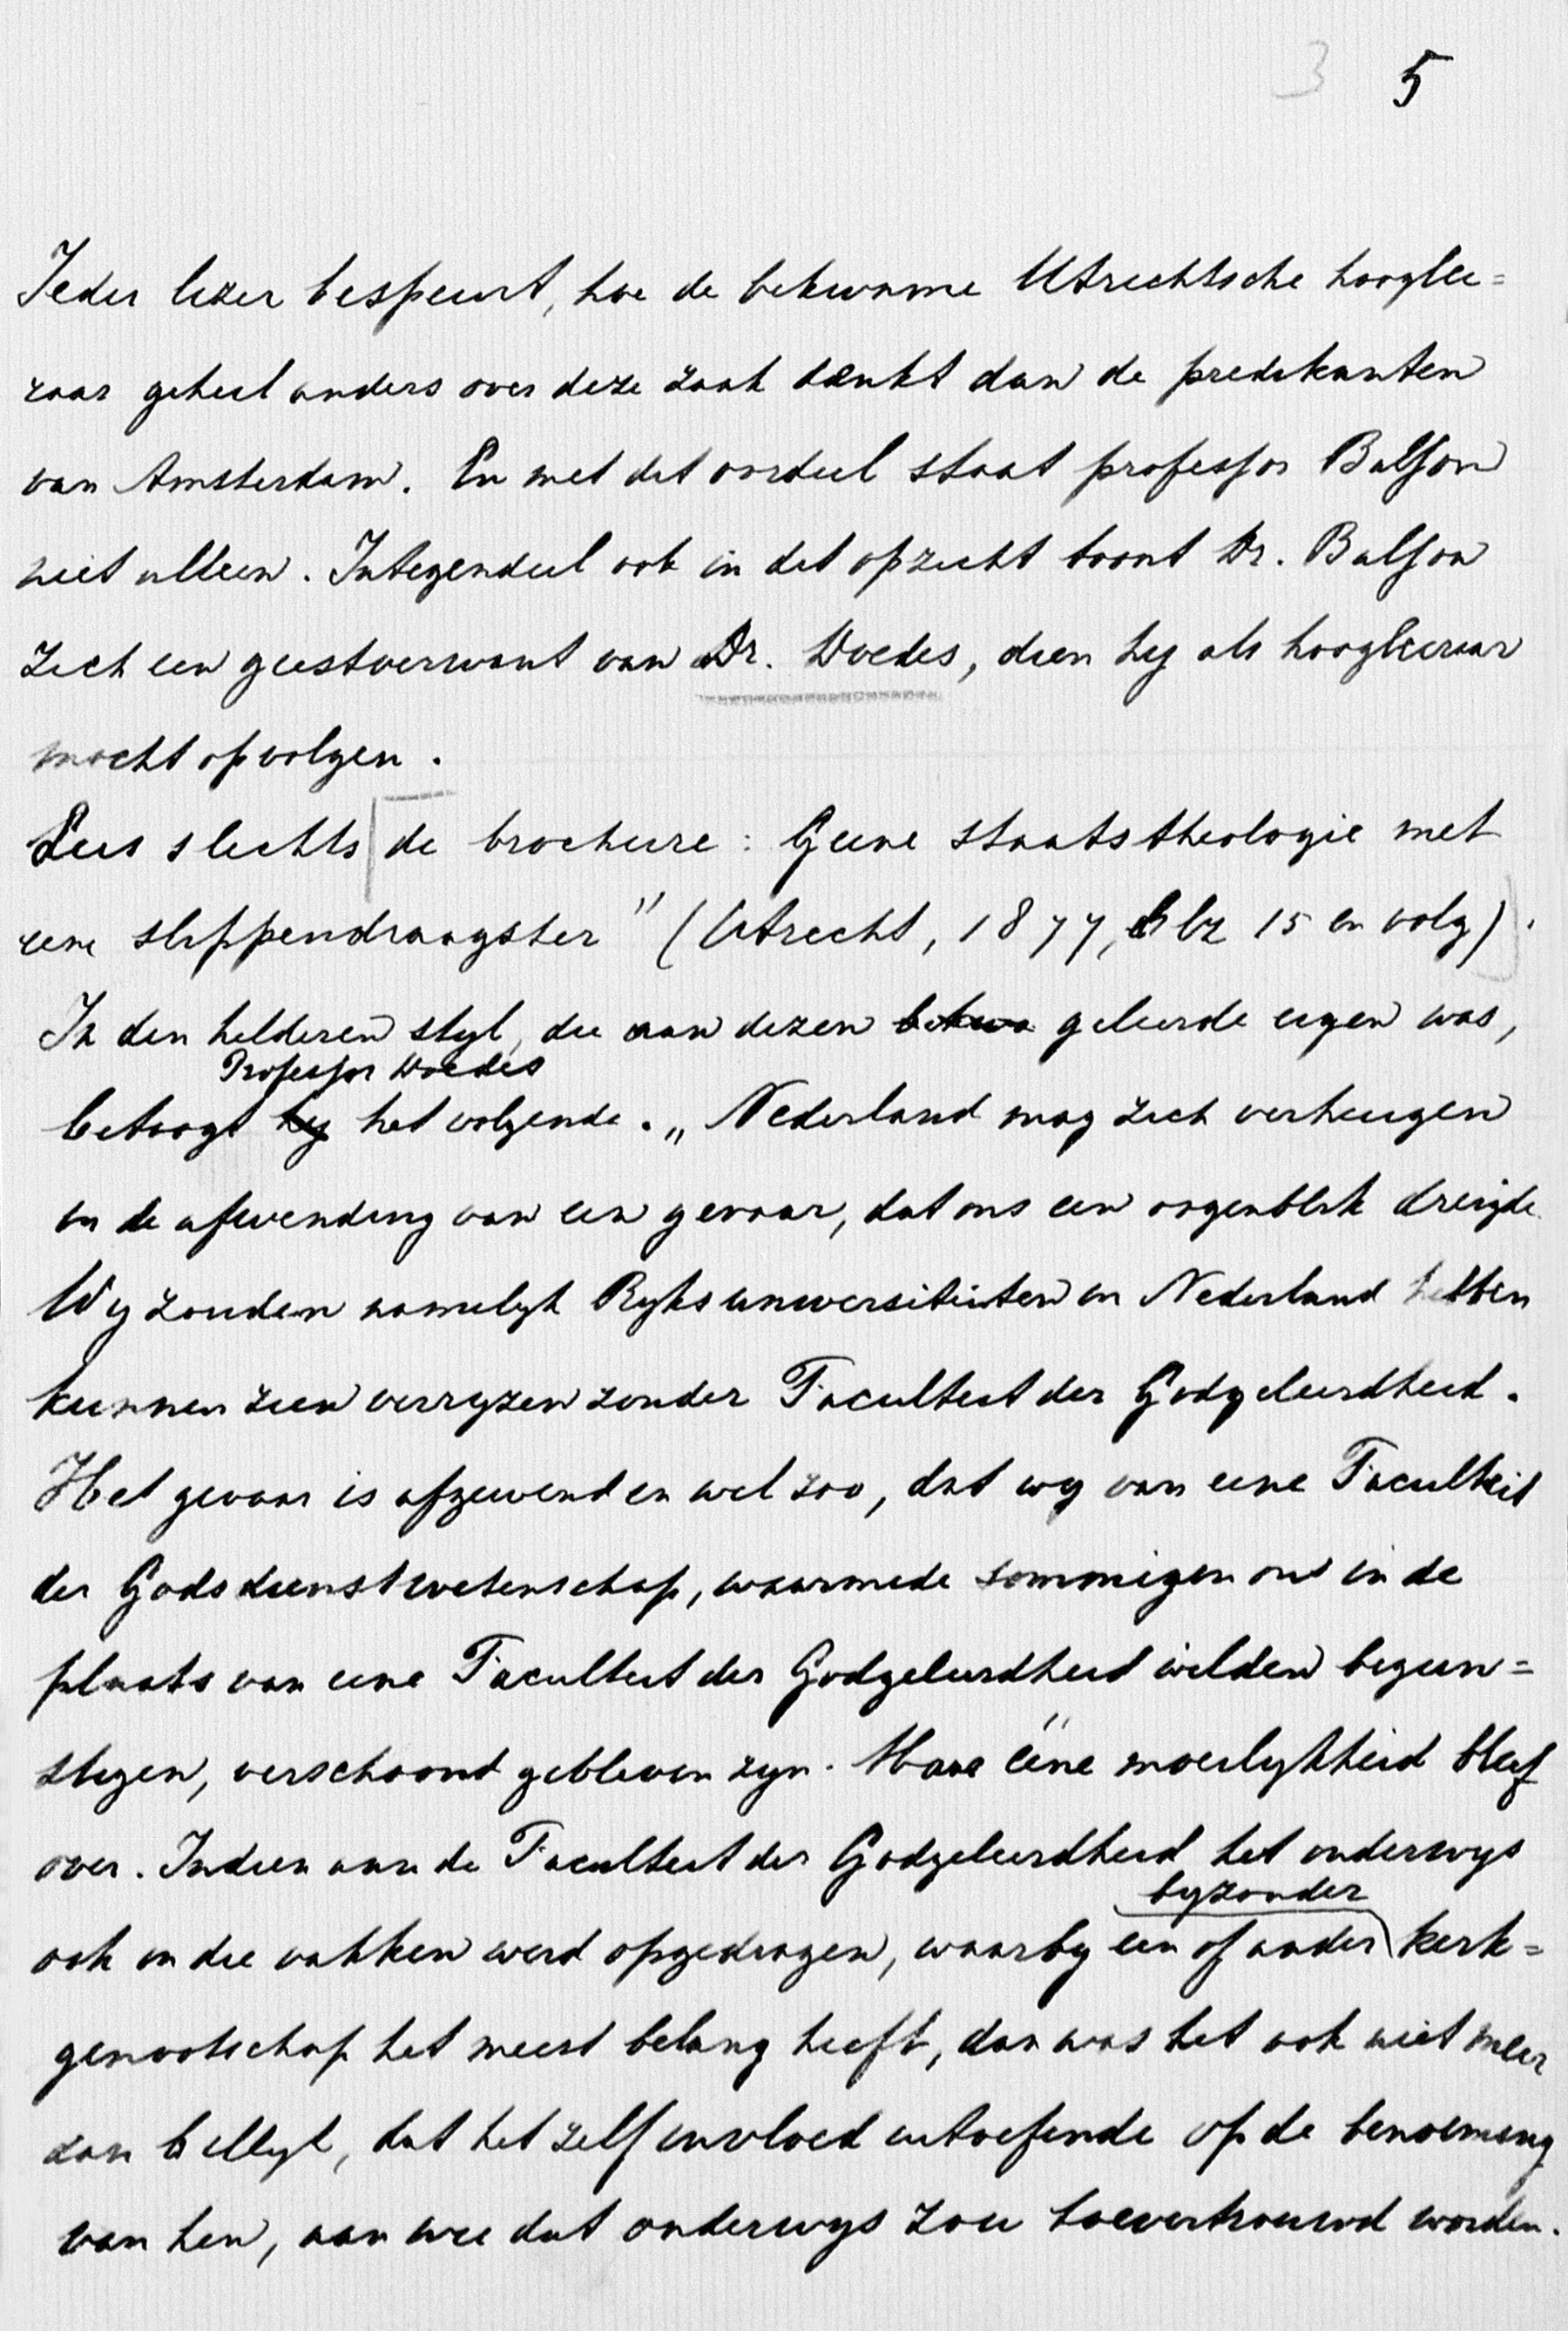 3 5
Ieder lezer bespeurt, hoe de bekwame Utrechtsche hooglee=
raar geheel anders over deze zaak denkt dan de predikanten
van Amsterdam. En met dit oordeel staat professor Baljon
niet alleen. Integendeel ook in dit opzicht toont Dr. Baljon
zich een geestverwant van Dr. Doedes, dien hij als hoogleeraar
mocht opvolgen.
Lees slechts de brochure: Geene staatstheologie met
eene slippendraagster" (Utrecht, 1877, blz 15 en volg).
In den helderen stijl, die aan dezen bekwa geleerde eigen was,
Professor Doedes
betoogt hij het volgende. „Nederland mag zich verheugen
in de afwending van een gevaar, dat ons een oogenblik dreigde.
Wij zouden namelijk Rijksuniversiteiten in Nederland hebben
kunnen zien verrijzen zonder Faculteit der Godgeleerdheid.
Het gevaar is afgewend en wel zoo, dat wij van eene Faculteit
der Godsdienstwetenschap, waarmede sommigen ons in de
plaats van eene Faculteit der Godgeleerdheid wilden begun=
stigen, verschoond gebleven zijn. Maar ééne moeilijkheid bleef
over. Indien aan de Faculteit der Godgeleerdheid het onderwijs
bijzonder
ook in die vakken werd opgedragen, waarbij een of ander kerk=
genootschap het meest belang heeft, dan was het ook niet meer
dan billijk, dat het zelf invloed uitoefende op de benoeming
van hen, aan wie dat onderwijs zou toevertrouwd worden.